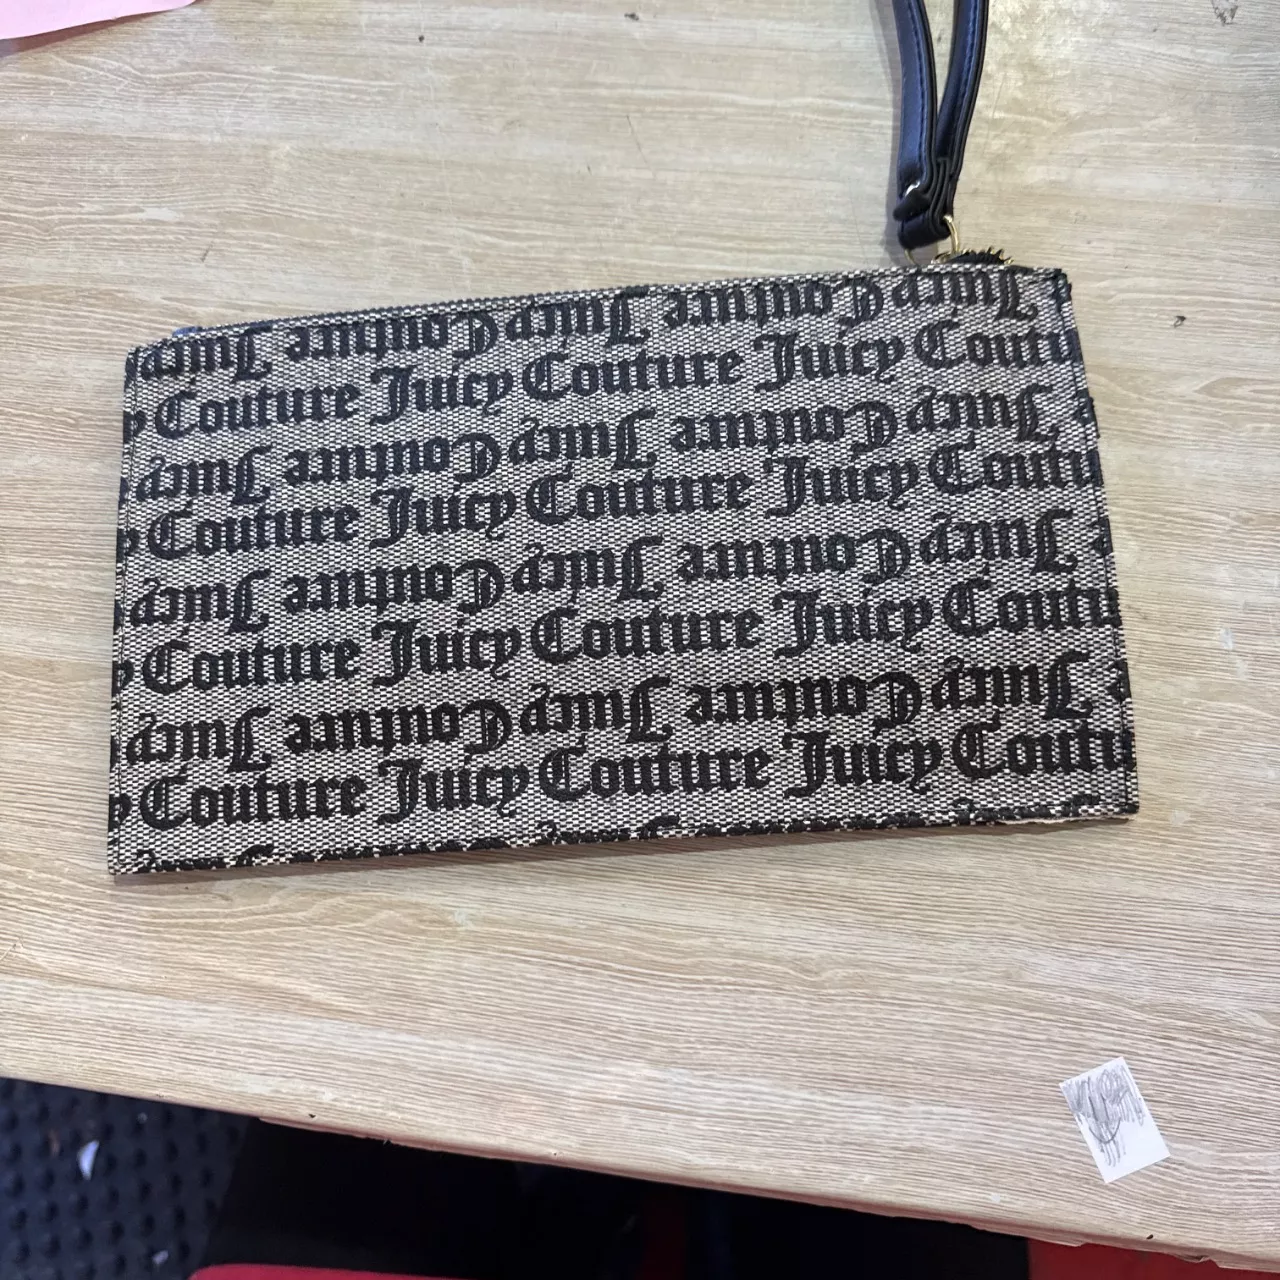 Juicy Couture Juicy Couture Juicy
Couture Juicy Couture Juicy Coutu
Juicy Couture Juicy Couture Juicy
Couture Juicy Couture Juicy Coutu
Juicy Couture Juicy Couture Juicy
Couture Juicy Couture Juicy Coutu
Juicy Couture Juicy Couture Juicy
Couture Juicy Couture Juicy Coutu